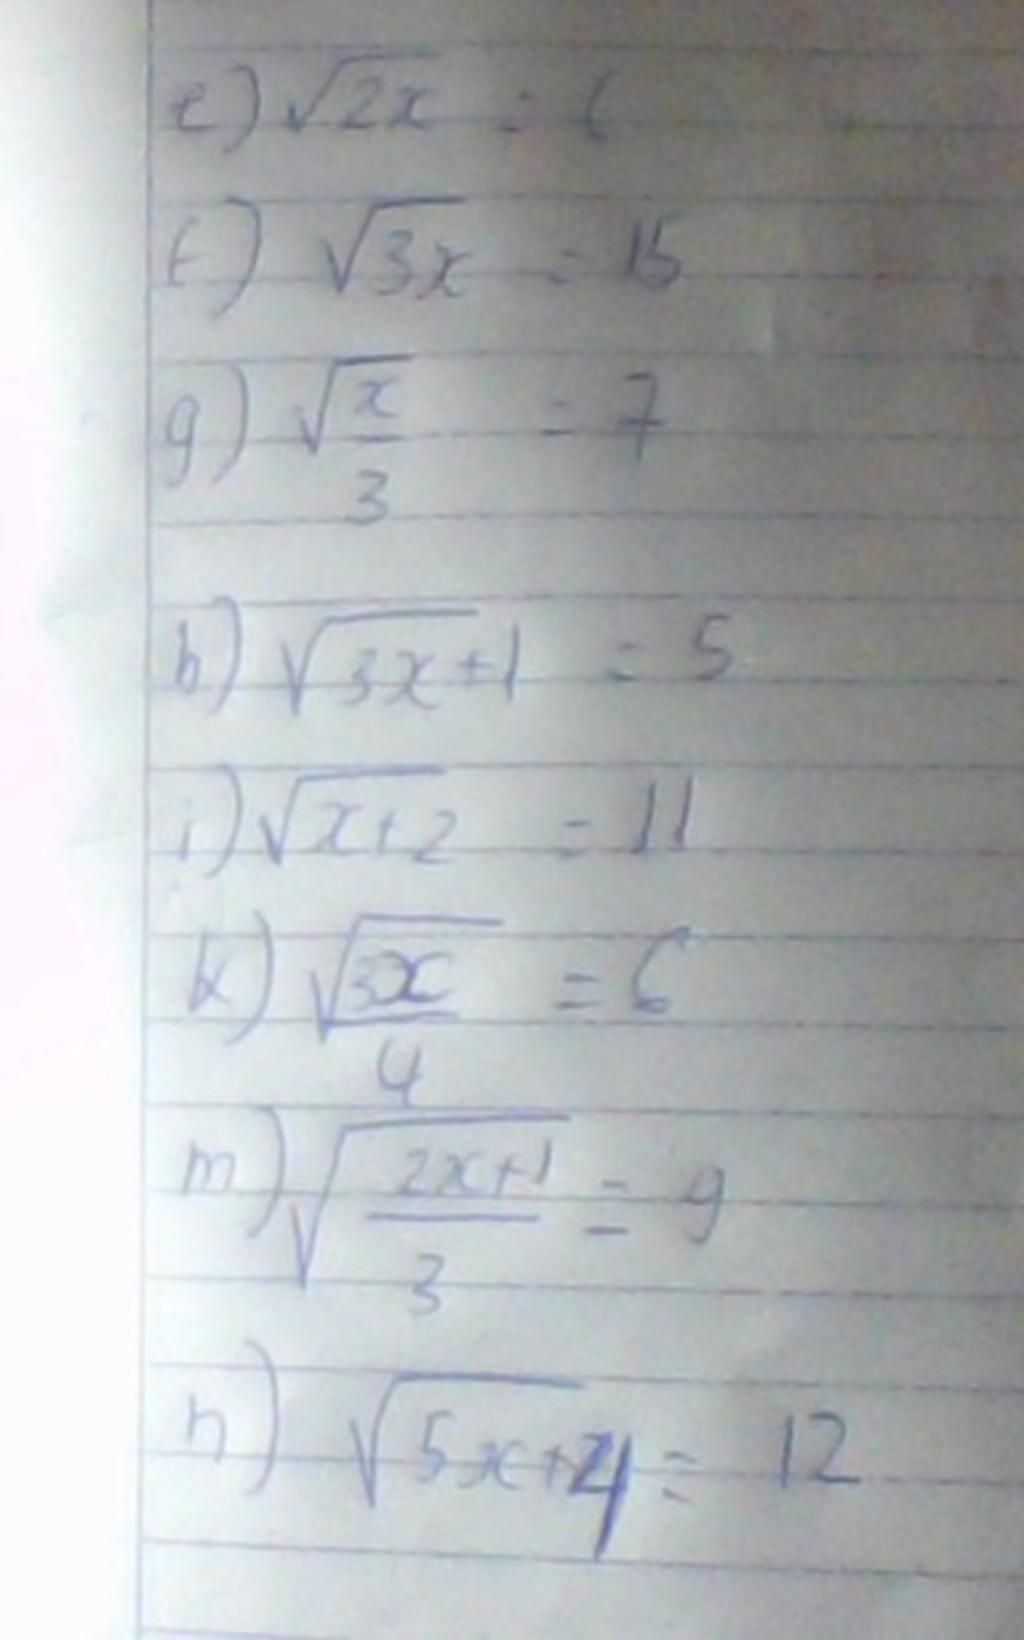 e) √2x = 6
f) √3x = 15
g) √x/3 = 7
h) √3x+1 = 5
i) √x+2 = 11
k) √3x/4 = 6
m) √2x+1/3 = 9
n) √5x+4 = 12